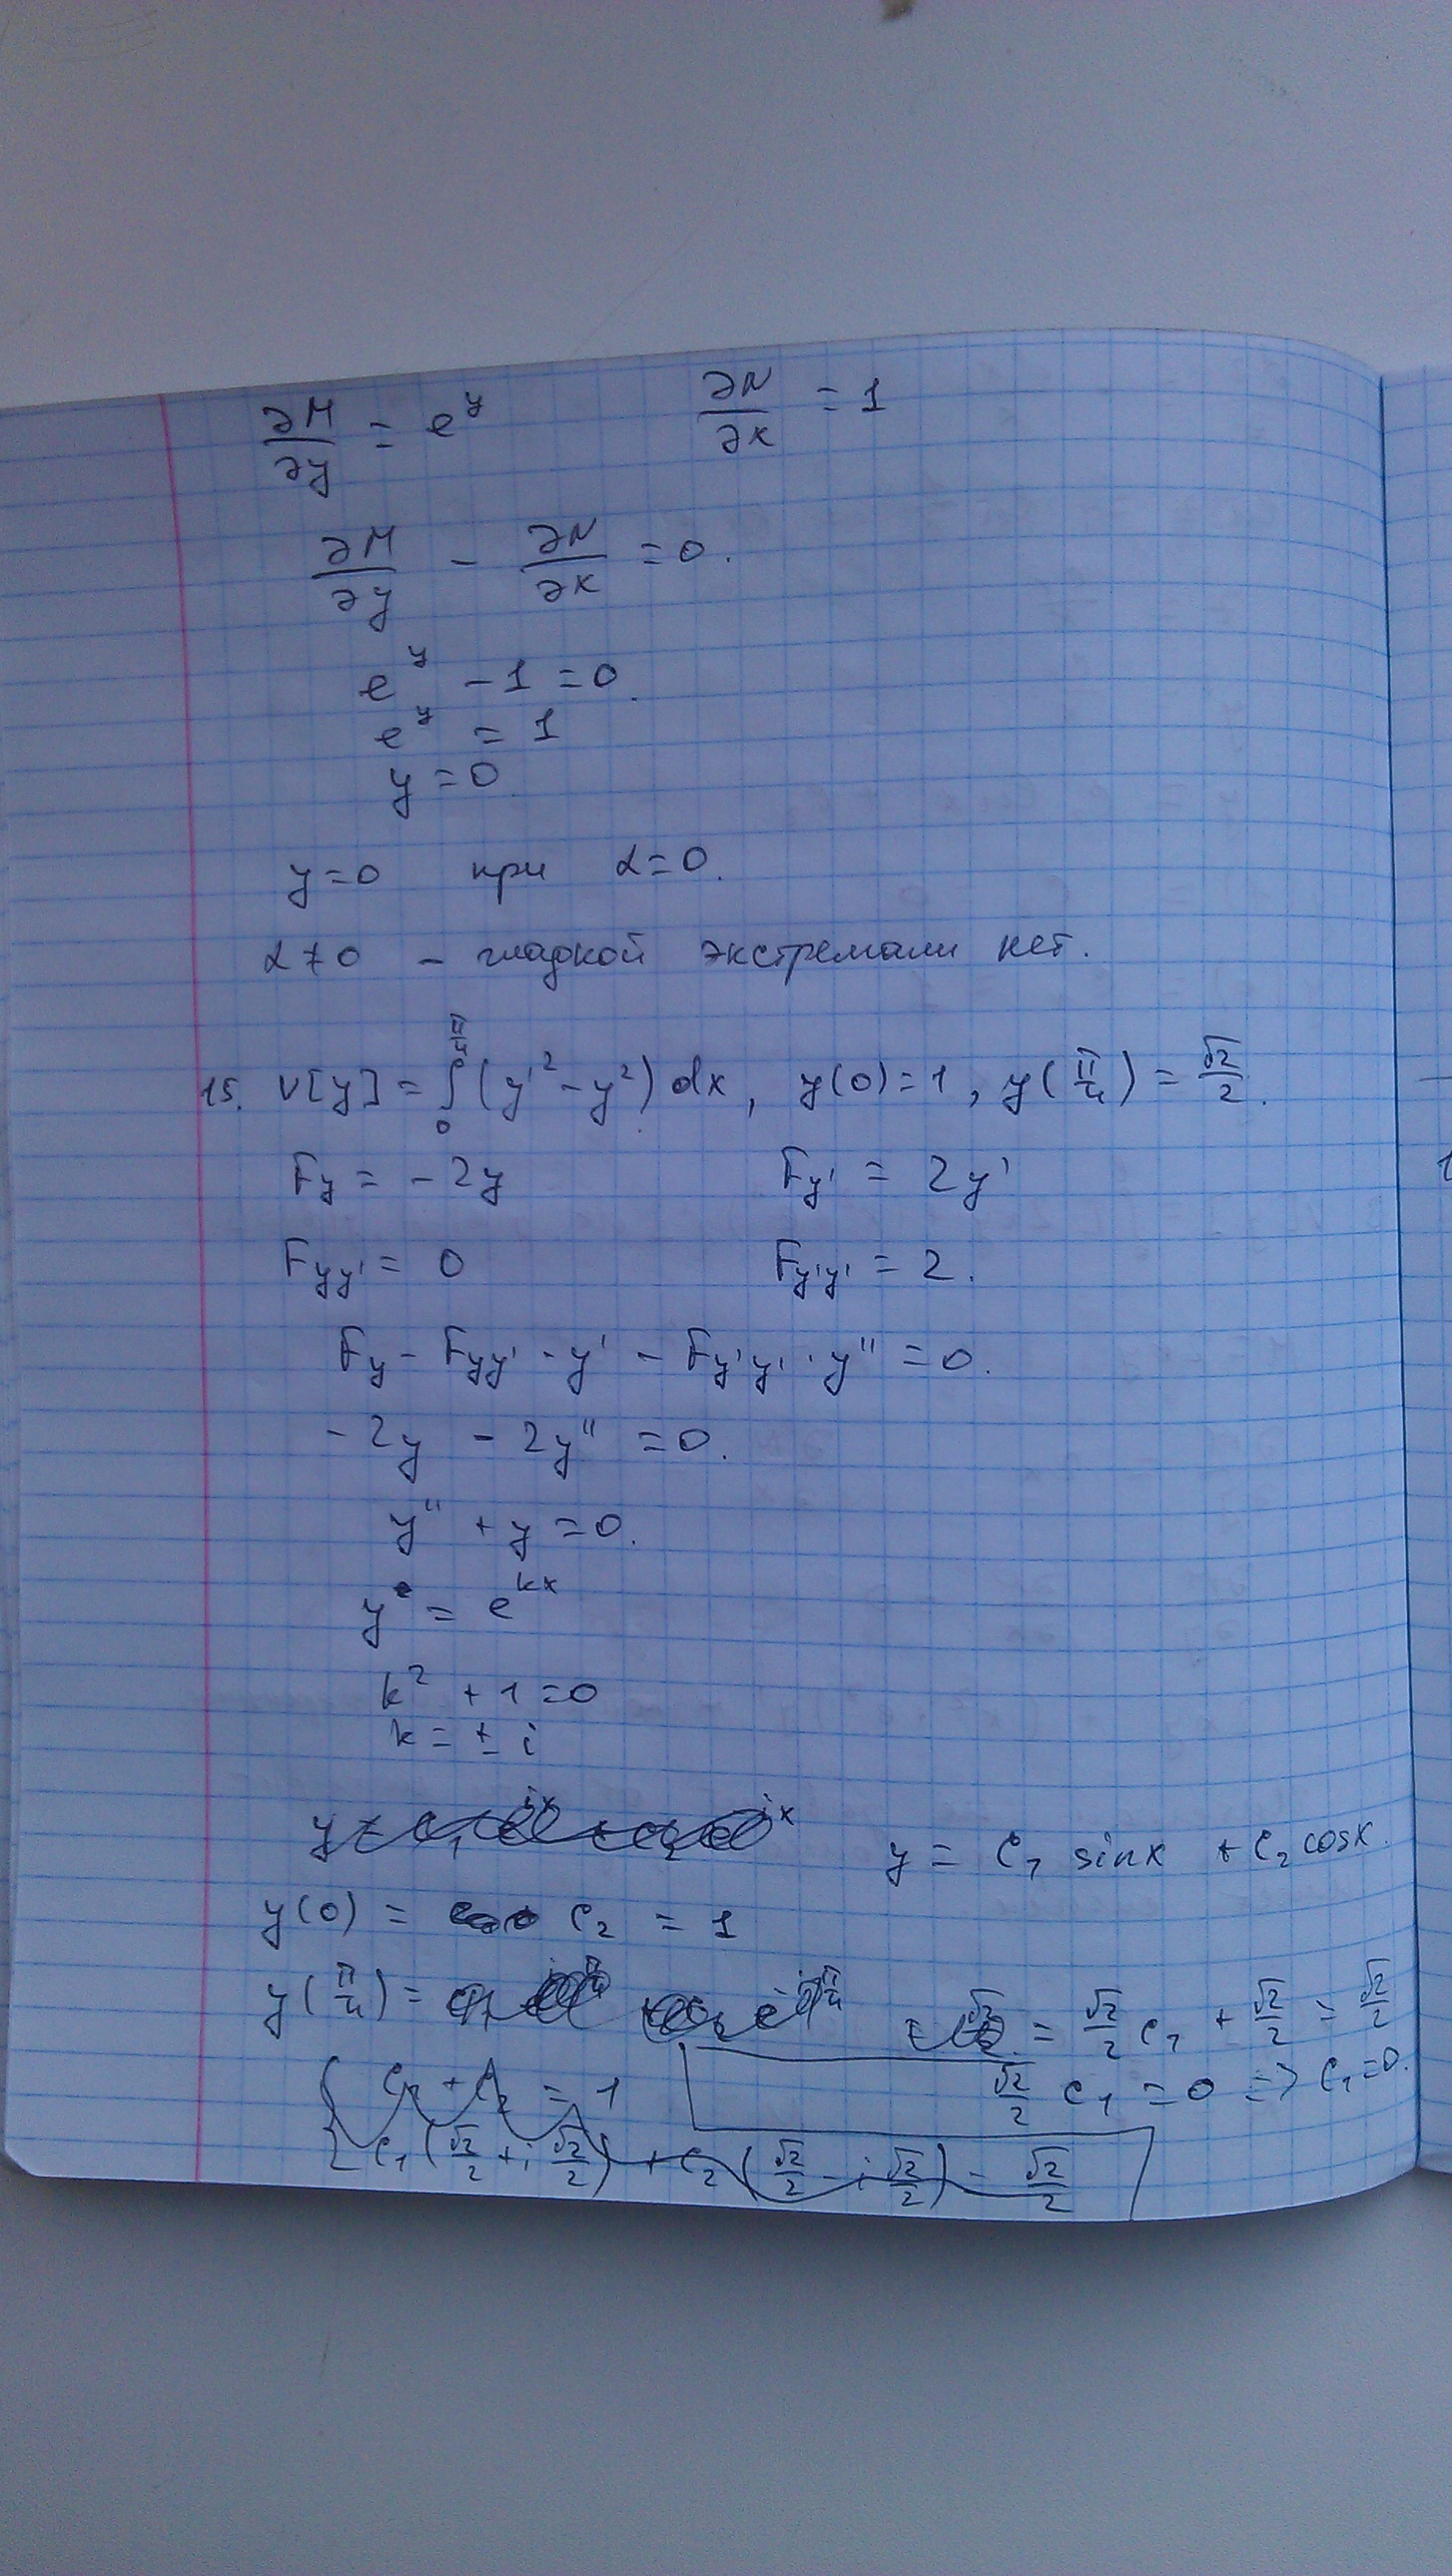 ∂M/∂y = e^y    ∂N/∂x = 1
∂M/∂y - ∂N/∂x = 0.
e^y - 1 = 0.
e^y = 1
y = 0.
y = 0 при α = 0.
α ≠ 0 - гладкой экстремали нет.
15. V[y] = ∫_0^{π/4} (y'^2 - y^2) dx, y(0) = 1, y(π/4) = √2/2.
F_y = -2y    F_y' = 2y'
F_yy' = 0    F_y'y' = 2.
F_y - F_yy' · y' - F_y'y' · y'' = 0.
-2y - 2y'' = 0.
y'' + y = 0.
y = e^{kx}
k^2 + 1 = 0
k = ± i
y = C_1 sinx + C_2 cosx.
y(0) = C_2 = 1
y(π/4) = = √2/2 C_1 + √2/2 = √2/2
√2/2 C_1 = 0 => C_1 = 0.
{ C_1 + C_2 = 1
C_1 (√2/2 + i √2/2) + C_2 (√2/2 - i √2/2) = √2/2